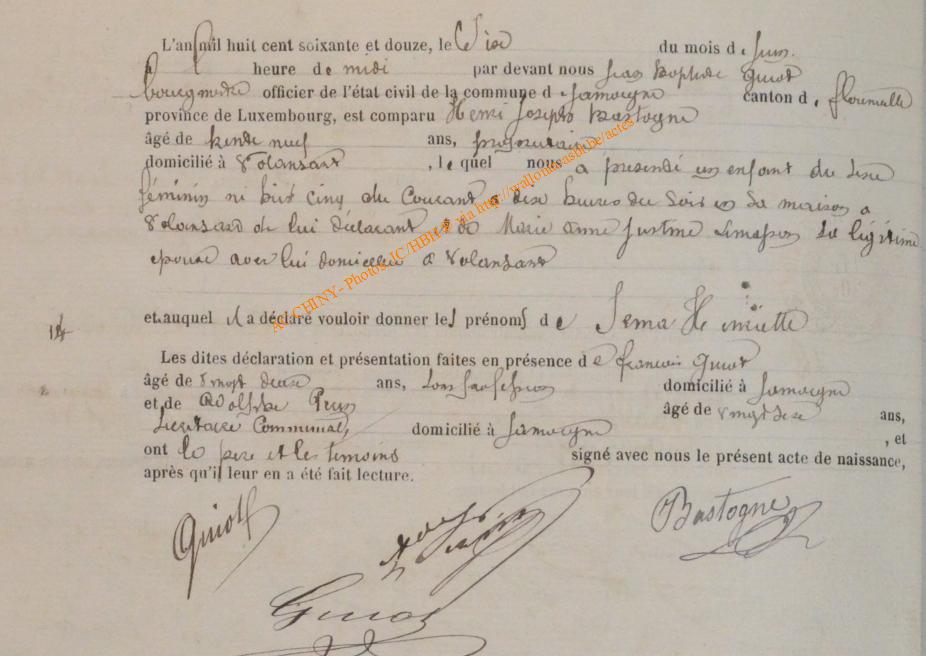 L'an mil huit cent soixante et douze, le Six du mois de Juin
à heure de midi par devant nous Jean Baptiste Guiot
bourgmestre officier de l'état civil de la commune d Jamoigne canton de florenville
province de Luxembourg, est comparu Henri Joseph Bastogne
âgé de trente neuf ans, propriétaire
domicilié à Valansart, lequel nous a présenté un enfant du sexe
féminin né hier cinq du Courant à dix heures du Soir en Sa maison a
Valansart de lui déclarant & de Marie anne Justine Limasson Sa légitime
epouse avec lui domiciliée a Valansart
14 et auquel il a déclaré vouloir donner les prénoms de Irma Henriette
Les dites déclaration et présentation faites en présence de françois Guiot
âgé de vingt deux ans, sans profession domicilié à Jamoigne
et de Adolphe âgé de vingt ans,
Secrétaire Communal, domicilié à Jamoigne, et
ont le pere et les temoins signé avec nous le présent acte de naissance,
après qu'il leur en a été fait lecture.
Guiot
Bastogne
Guiot
AC CHINY - Photos JC/HBH © via http://wallonia.asbl.be/actes